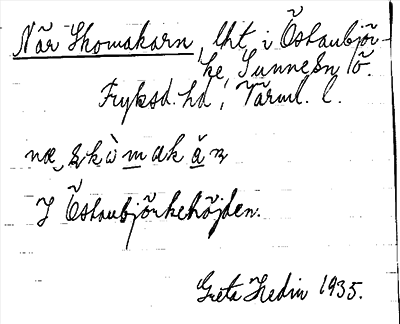 När Skomakarn, lht, i Östanbjör-
ke, Sunne sn lö.
Fryksd. hd, Värml. l.
I Östanbjörkehöjden.
Greta Hedin 1935.